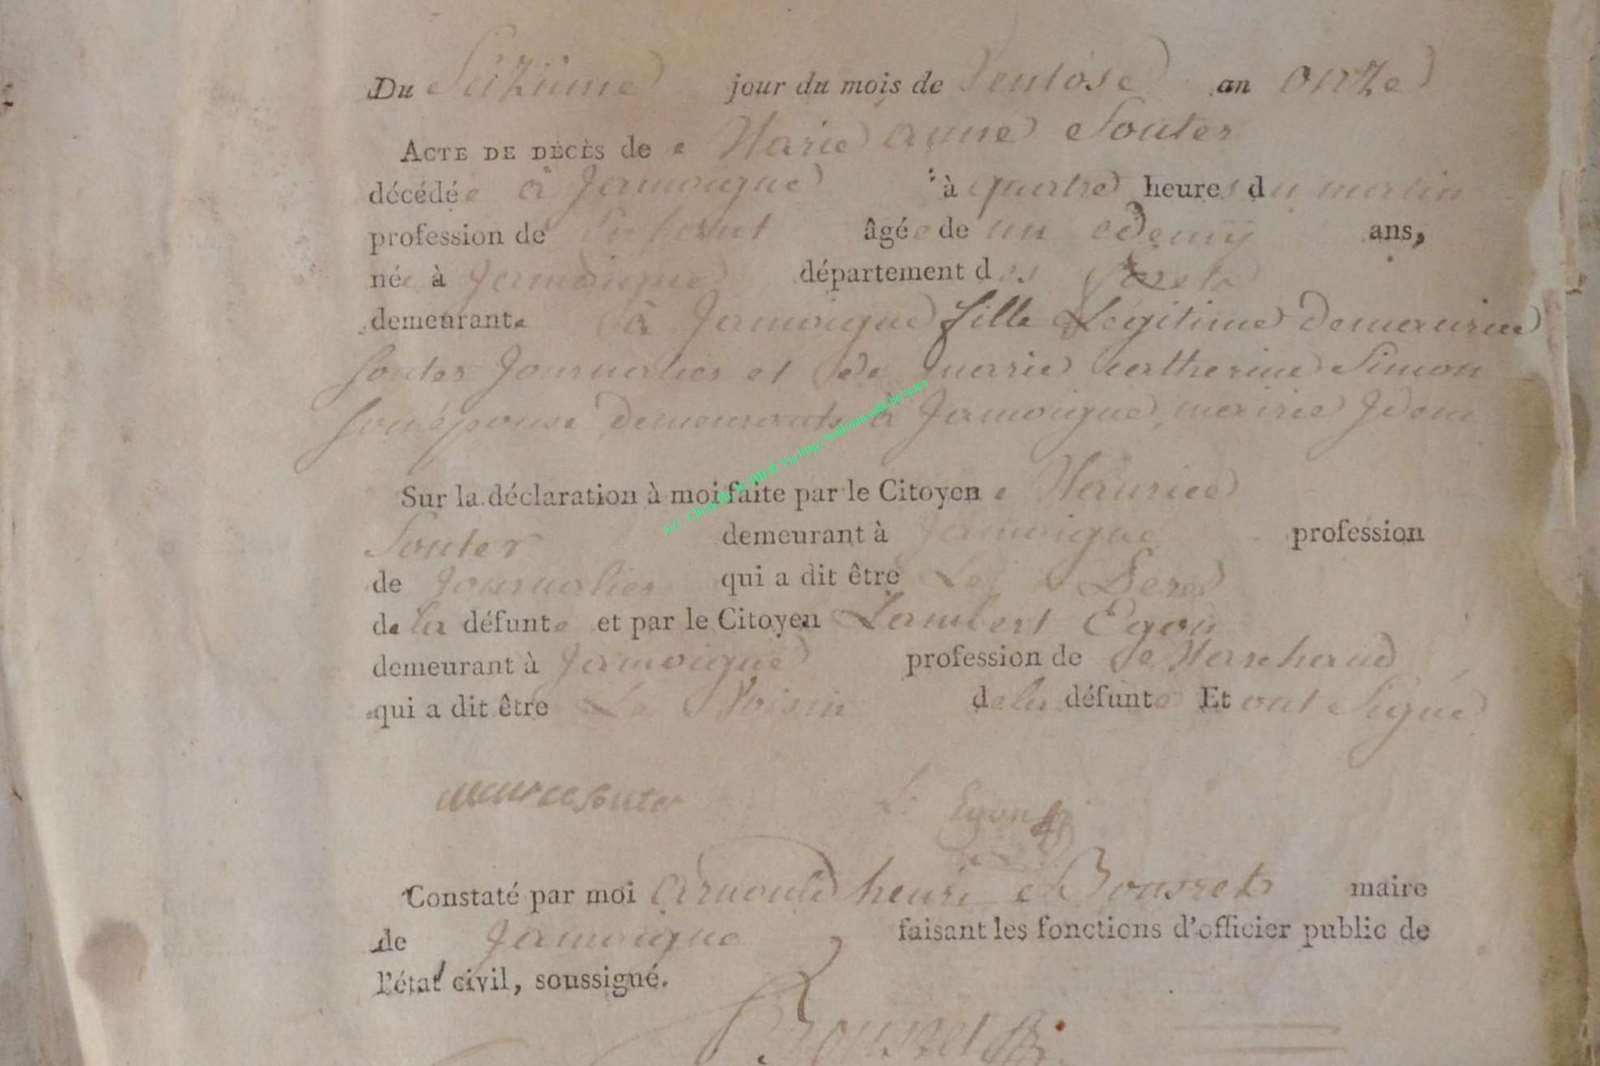 Du Seizieme jour du mois de Ventose an onze
ACTE DE DÉCÈS de Marie anne Souter
décédée à Jamoigne à quatre heures du matin
profession de âgée de un & Demy ans,
née à Jamoigne département des forets
demeurante à Jamoigne fille Légitime de maurice
Souter Journalier et de marie Catherine Simon
Son épouse demeurants à Jamoigne mairie Idem
Sur la déclaration à moi faite par le Citoyen Maurice
Souter demeurant à Jamoigne profession
de Journalier qui a dit être Le Pere
de la défunte et par le Citoyen Lambert Egon
demeurant à Jamoigne profession de Marchand
qui a dit être Le Voisin de la défunte Et ont Signé
maurice souter L. Egon
Constaté par moi arnould henri Bousret maire
de Jamoigne faisant les fonctions d'officier public de
l'état civil, soussigné.
Bousret